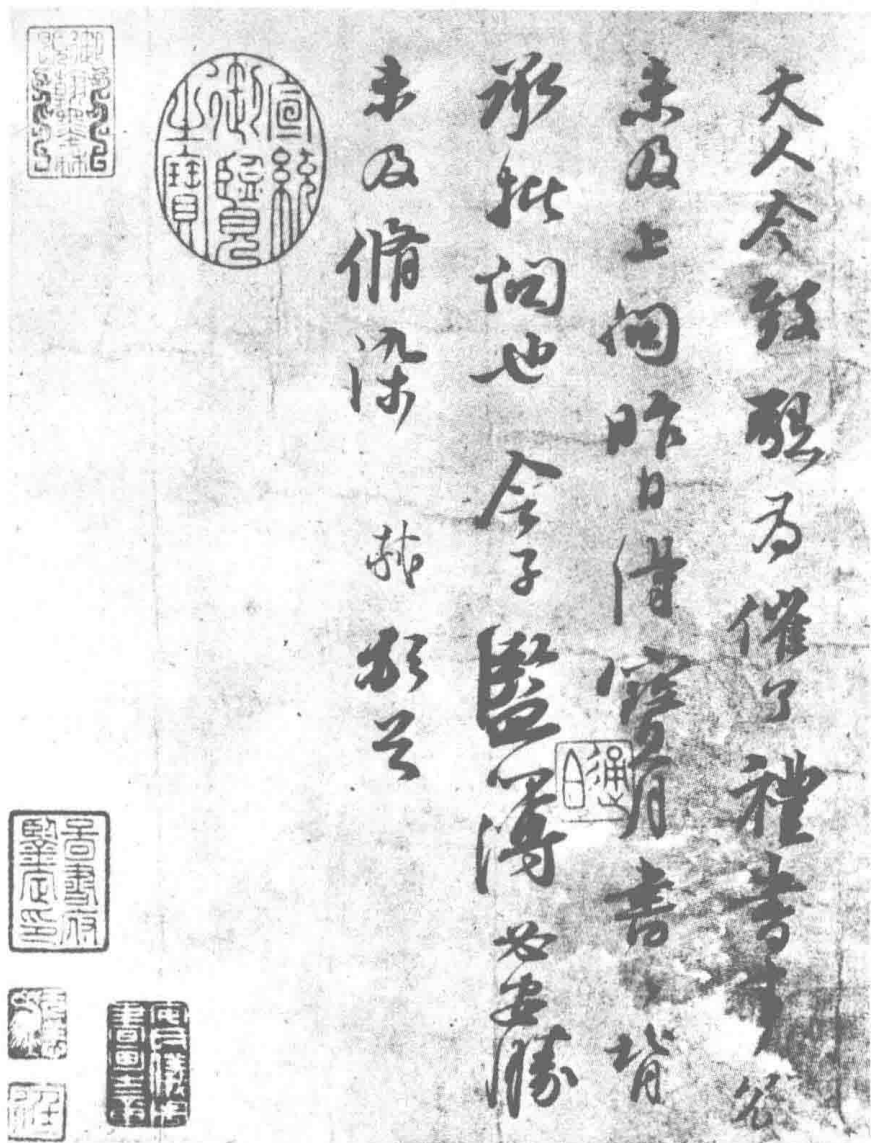 大人令致懇為催了禮書事冗
未及上問昨日得寶月書〻背
承批問也令子監簿必安勝
未及脩染 軾頓首
宣統御覽之寶